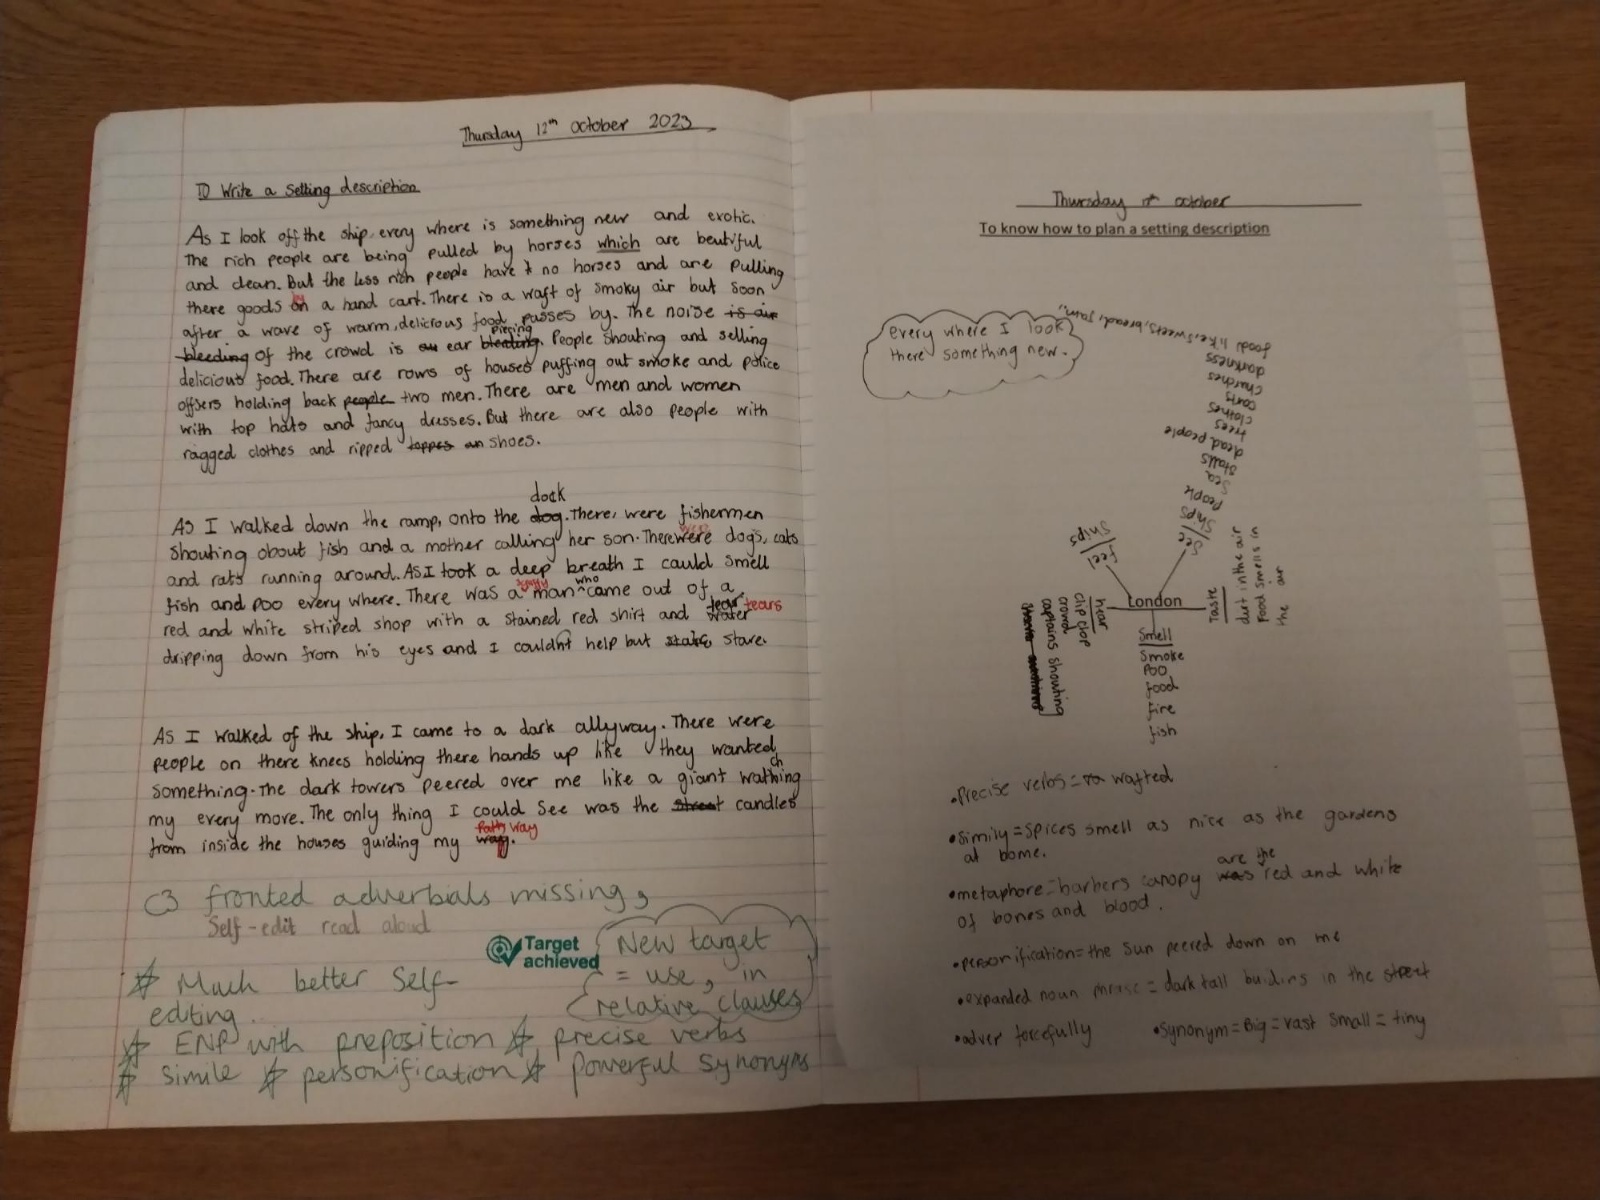 Thursday 12th October 2023
TO Write a Setting description
As I look off the ship, every where is something new and exotic.
The rich people are being pulled by horses which are beutiful
and clean. But the less rich people have no horses and are pulling
there goods on a hand cart. There is a waft of smoky air but soon
after a wave of warm, delicious food passes by. The noise is air
bleeding of the crowd is ear bleeding piecing. People shouting and selling
delicious food. There are rows of houses puffing out smoke and police
offsers holding back people two men. There are men and women
with top hats and fancy dresses. But there are also people with
ragged clothes and ripped shoes.
dock
As I walked down the ramp, onto the dog. There, were fishermen
shouting about fish and a mother calling her son. There were dogs, cats
and rats running around. As I took a deep breath I could smell
fish and poo every where. There was a man who came out of a
red and white striped shop with a stained red shirt and tear water tears
dripping down from his eyes and I couldn't help but stare.
As I walked of the ship, I came to a dark allyway. There were
people on there knees holding there hands up like they wanted
ch
something. The dark towers peered over me like a giant wathing
my every more. The only thing I could see was the street candles
Path way
from inside the houses guiding my way.
C3 fronted adverbials missing ,
Self-edit read aloud
Target
achieved
New target
= use , in
relative clauses
Much better self-
editing.
ENP with preposition precise verbs
simile personification powerful synonyms
Thursday October
To know how to plan a setting description
every where I look
there something new.
food like: sweets, bread, jam,
darkness
churches
carts
clothes
trees
dead people
stalls
sea
people
ships
See
feel
ships
London
hear
clip clop
crowd
captains shouting
Taste
dirt in the air
Food smells in
the air
Smell
Smoke
Poo
food
fire
fish
•Precise verbs = wafted
•Simily = Spices smell as nice as the gardens
at home.
are the
•metaphore = barbers canopy was red and white
of bones and blood.
•personification = the sun peered down on me
•expanded noun phrase = dark tall buidirs in the street
•adver forcefully •Synonym = Big = vast small = tiny